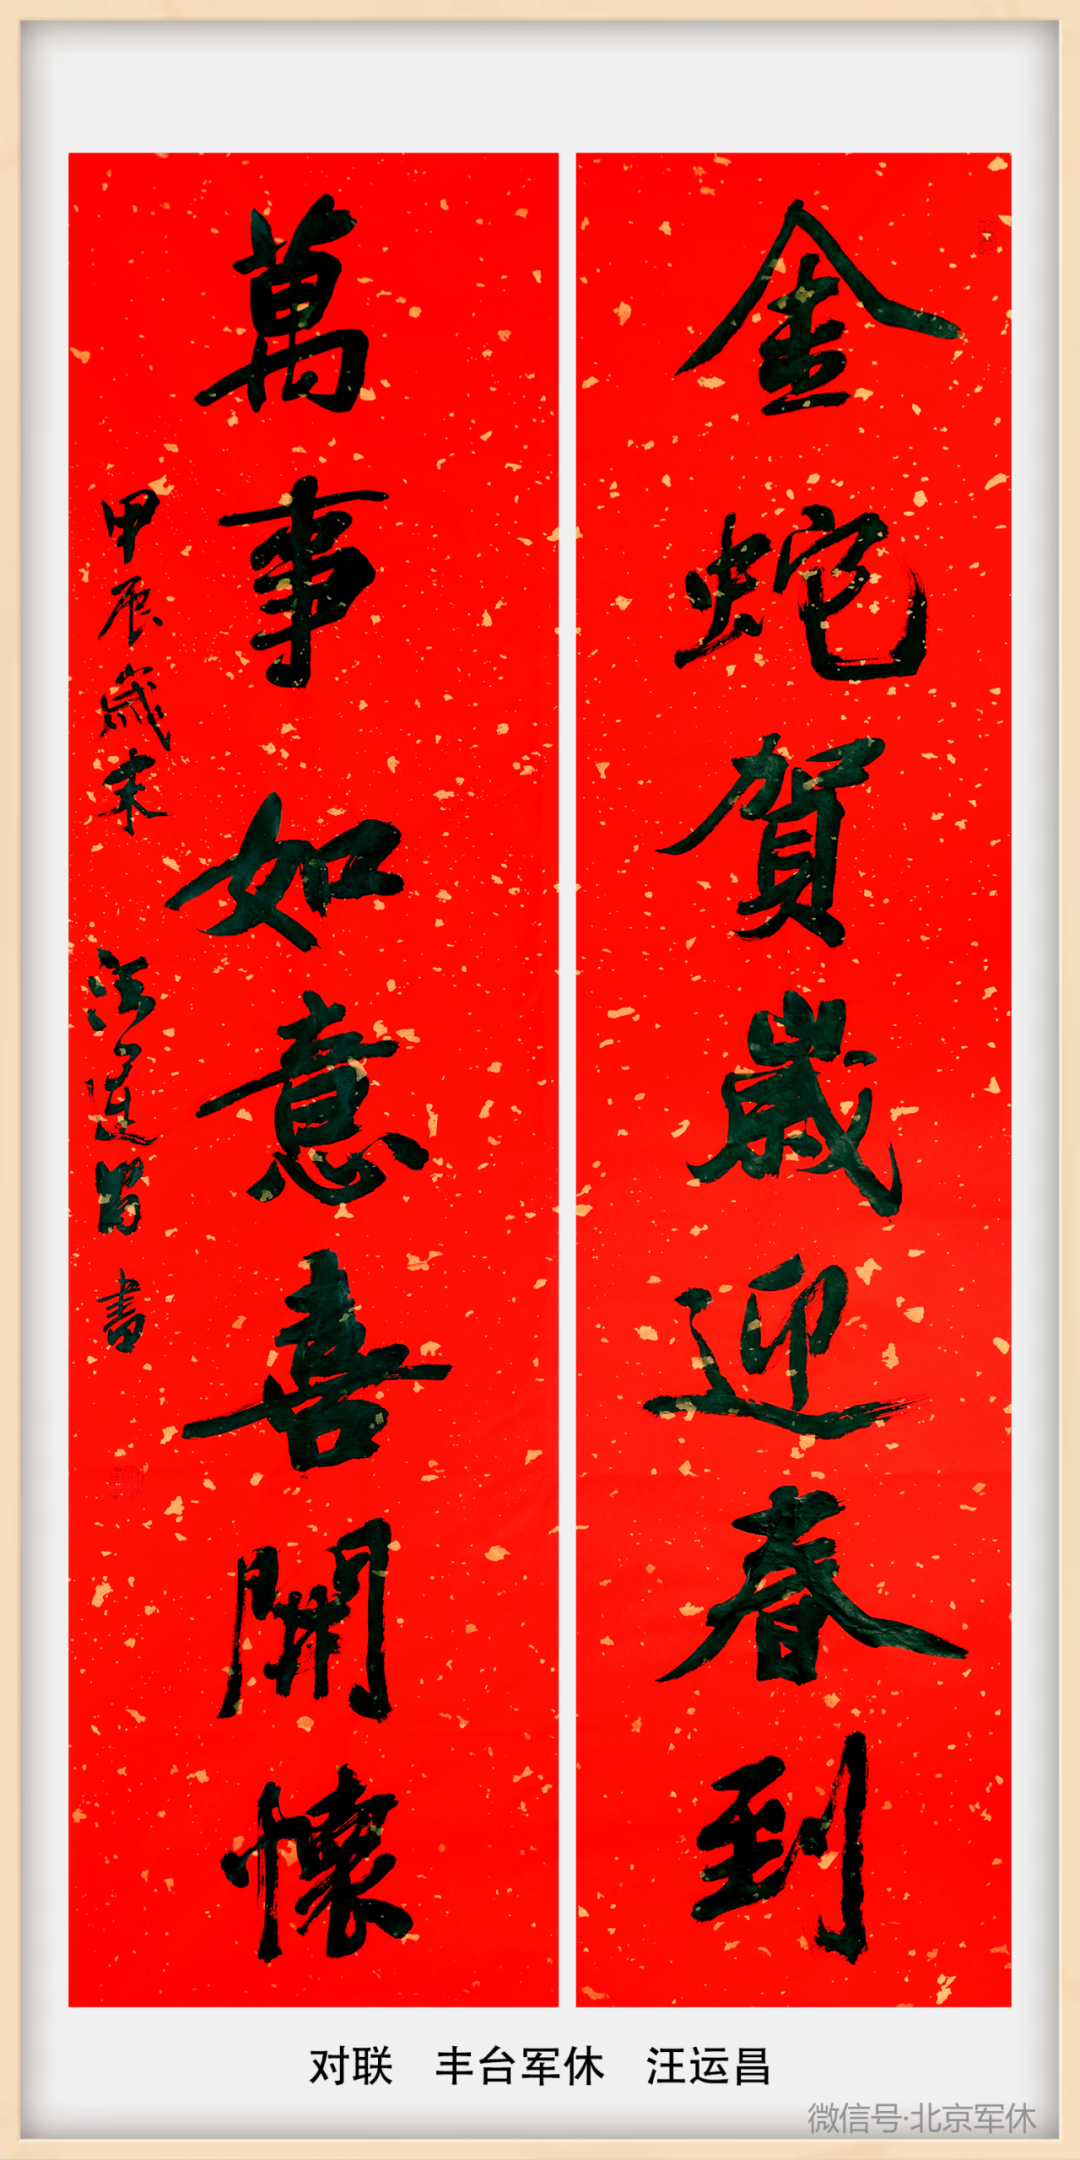 金蛇賀歲迎春到
萬事如意喜開懷
甲辰歲末 汪運昌 書
对联 丰台军休 汪运昌
微信号·北京军休